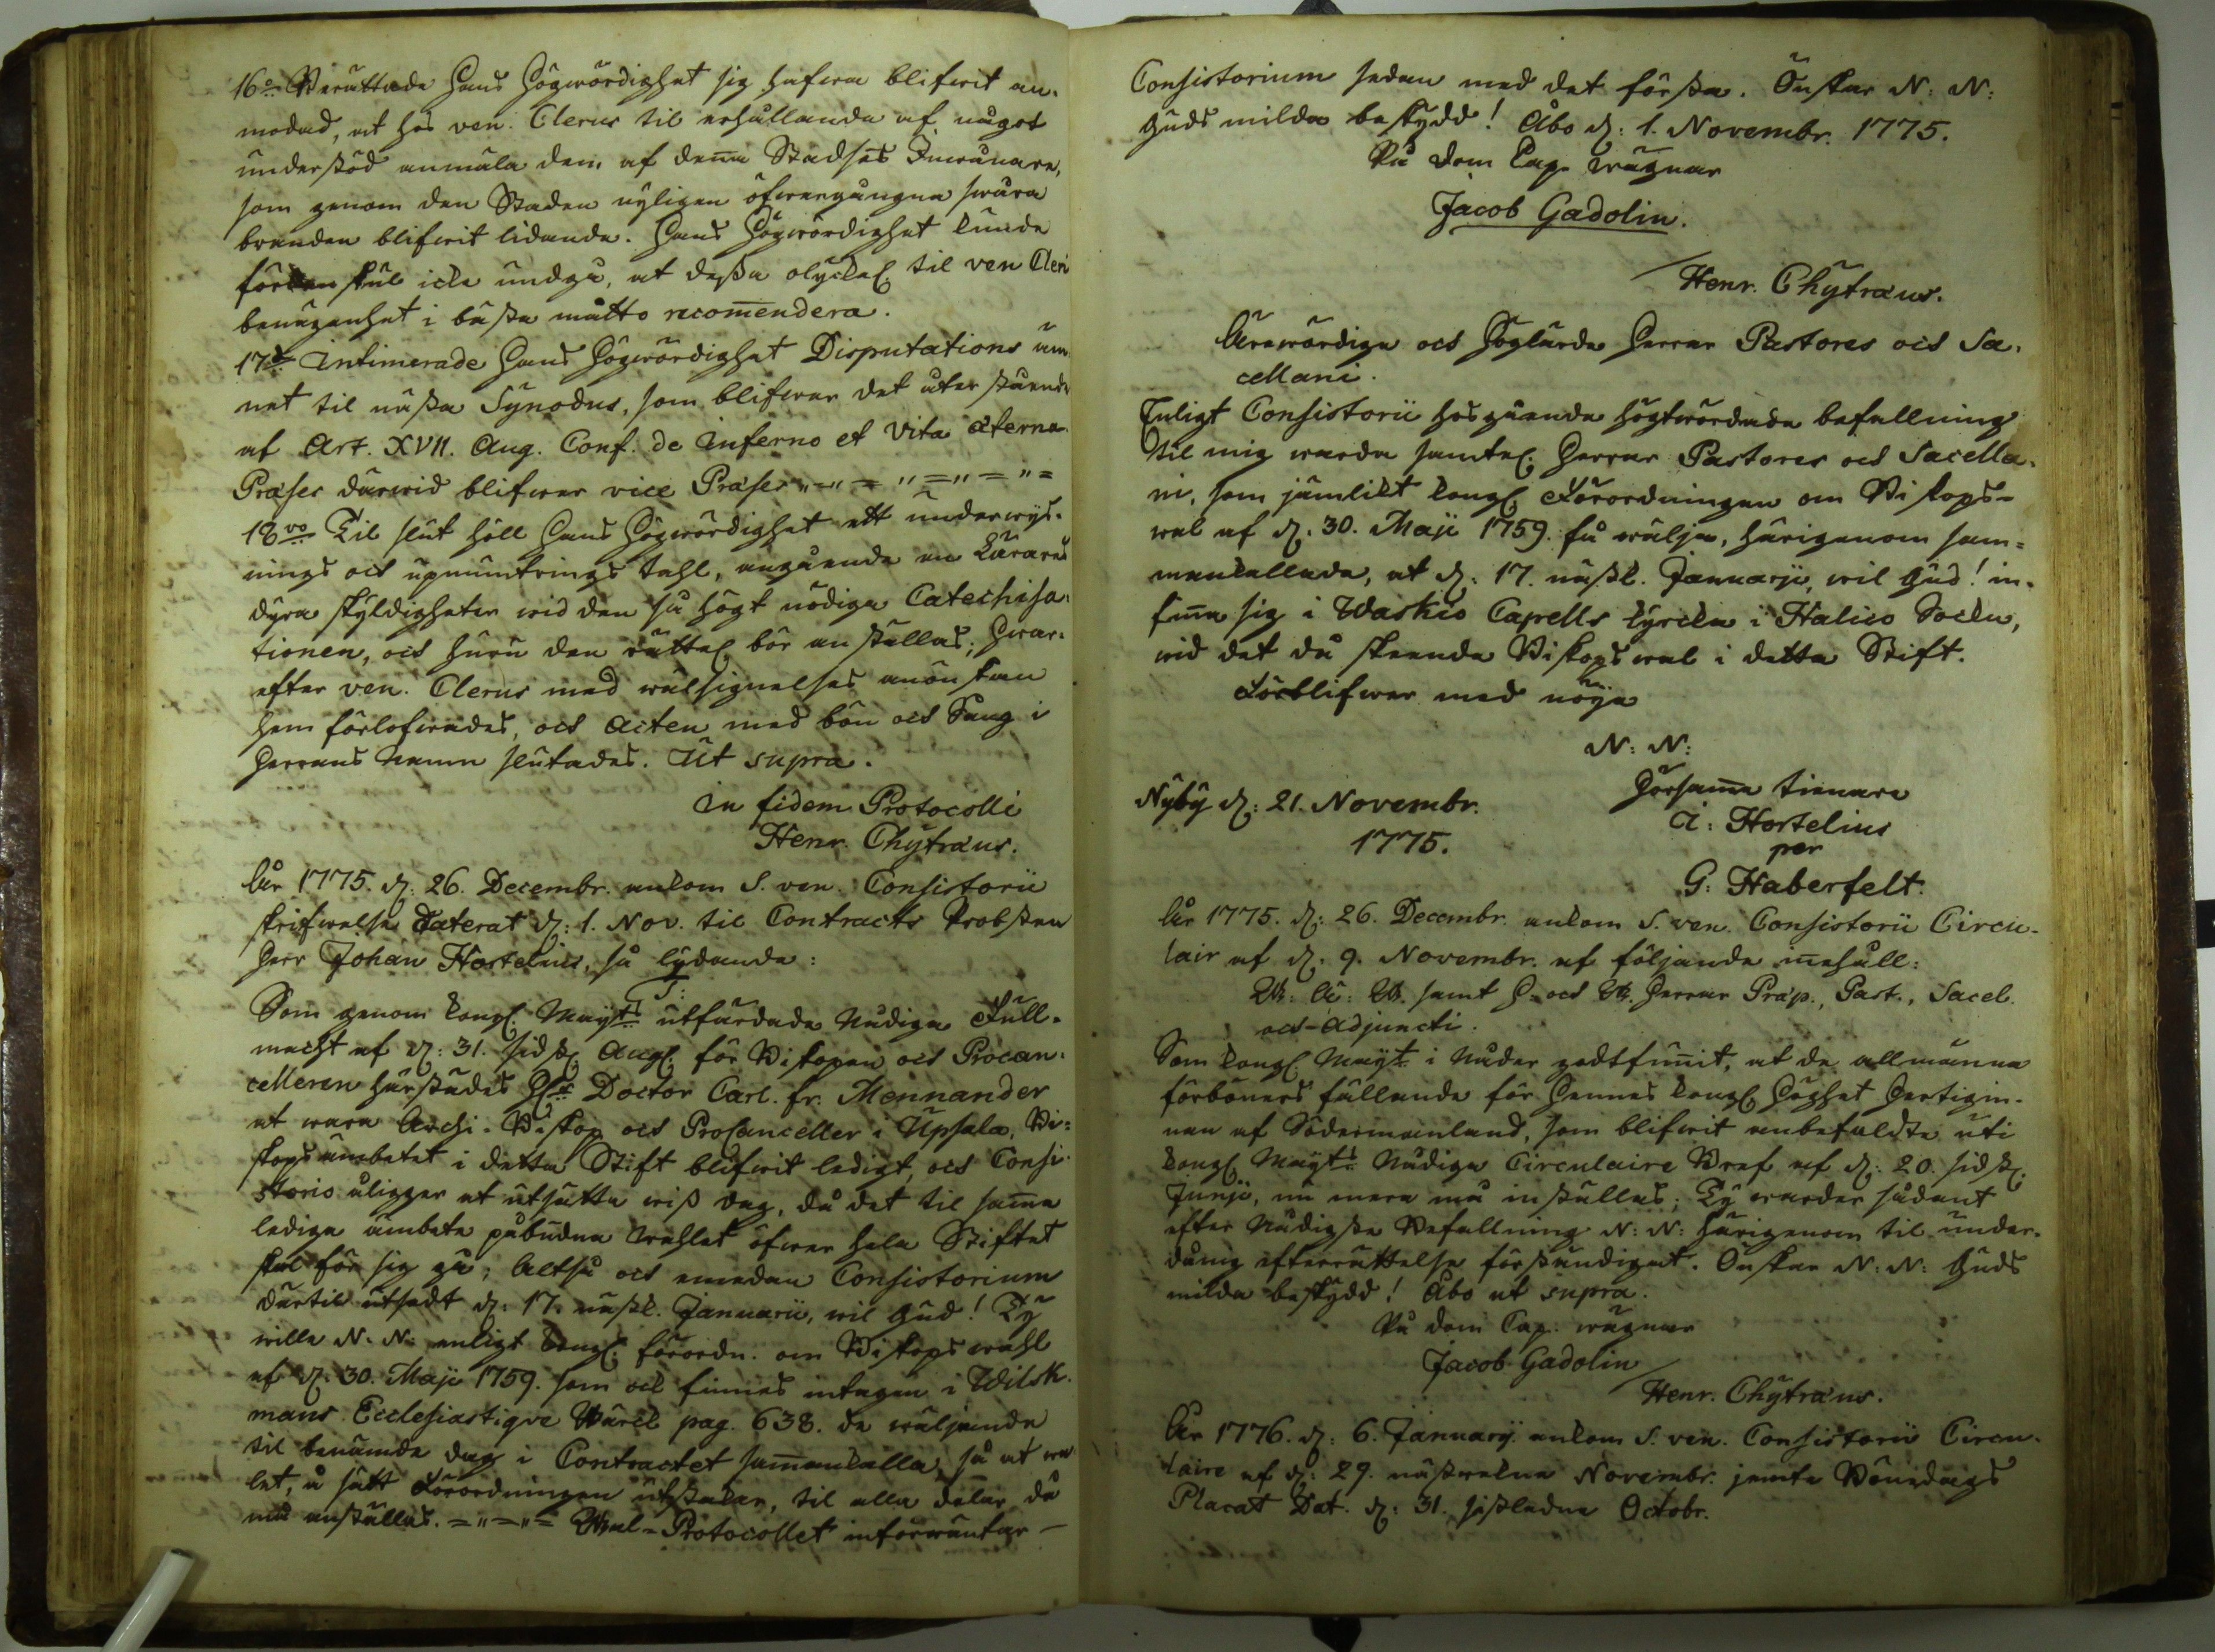 16:o Berättade Hans Högwördighet sig hafwa blifwit an-
modad, at hos ven. Clerus til erhållande af något
understöd anmäla dem af denna Stadsens Inwånare,
som genom den Staden nyligen öfwergångna swåra
branden blifwit lidande. Hans Högwördighet kunde
förden skul icke undgå, at dessa olyckel. til ven Cleri
benägenhet i bästa måtto recommendera.
17:o Intimerade Hans Högwördighet Disputations äm-
net til nästa Synodus, som blifwer det återstående
af Art. XVII. Aug. Conf. de Inferno et vita æterna.
Præses därwid blifwer vice Præses „=„ = „=„ = „=
18:vo Til slut höll Hans Högwördighet ett underwis-
nings och upmuntrings tahl, angående en Lärares
dyra skyldigheter wid den så högt nödiga Catechisa-
tionen, och huru den rättel. bör anställas; hwar-
efter ven. Clerus med wälsignelses önskan
hem förlofwades, och Acten med bön och Sång i
Herrans Namn slutades. Ut supra.
In fidem Protocolli
Henr. Chytræus.
År 1775. d: 26. Decembr. ankom S. ven. Consistorii
skrifwelse daterat d: 1. Nov. til Contracts Probsten
Herr Johan Hortelius, så lydande:
Som genom Kongl. Mayts utfärdade Nådiga Full-
macht af d: 31. sidstl. Aug. för Biskopen och Procan-
celleren härstädes H:r Doctor Carl. Fr. Mennander
at wara Archi-Biskop och ProCanceller i Upsala, Bi-
skops ämbetet i detta Stift blifwit ledigt, och Consi-
storio åligger at utsätta wiss dag, då det til samma
lediga ämbete påbudna Wahlet öfwer hela Stiftet
skal för sig gå; Altså och emedan Consistorium
därtil utsedt d: 17. nästk. Januarii, wil Gud! Ty
wille N. N: enligt Kongl. förordn. om Biskops wahl
af d: 30. Maji 1759. som ock finnes intagen i Wilsk-
mans Ecclesiastique Wärck pag. 638. de wäljande
til benämde dag i Contractet sammankalla, så at wa-
let, å sätt Förordningen utstakar, til alla delar då
må anställas. =„=„= Wal-Protocollet inforwäntar
Consistorium sedan med det första. Önskar N: N:
Guds milda beskydd! Åbo d: 1. Novembr. 1775.
På Dom Cap. wägnar
Jacob Gadolin.
Henr. Chytræus.
Ärewördige och Höglärde Herrar Pastores och Sa-
cellani.
Enligt Consistorii hosgående högtwördade befallning
til mig warda samtel. Herrar Pastores och Sacella-
ni, som jämlikt Kongl. Förordningen om Biskops-
wal af d: 30. Maji 1759. få wälja, härigenom sam-
mankallade, at d: 17. nästk. Januarii, wil Gud! in-
finna sig i Waskio Capells kyrcka i Halico Sockn,
wid det då skeende Biskops wal i detta Stift.
Förblifwer med nöje
N: N:
Nyby d: 21. Novembr.
1775.
Hörsamme tienare
J: Hortelius
per
G: Haberfelt.
År 1775. d: 26. Decembr. ankom S. ven. Consistorii Circu-
lair af d: 9. Novembr. af följande innehåll:
W: Ä: W. samt H. och W. Herrar Præp., Past., Sacel.
och Adjuncti.
Som Kongl. Mayt i Nåder godtfunnit, at de allmänna
förböners fällande för Hennes Kongl. Höghet Hertigin-
nan af Södermanland, som blifwit anbefaldte uti
Kongl. Mayts Nådiga Circulaire Bref af d: 20. sidstl.
Junji, nu mera må inställas; Ty warder sådant
efter Nådigste Befallning N: N: härigenom til under-
dånig efterrättelse förständigat. Önskar N: N: Guds
milda beskydd! Åbo ut supra.
På Dom Cap: wägnar
Jacob Gadolin
Henr. Chytræus.
År 1776. d: 6. January. ankom S. ven. Consistorii Circu-
laire af d: 29. nästwekne Novembr. jemte Bönedags
Placat Dat. d: 31. sistledne Octobr.